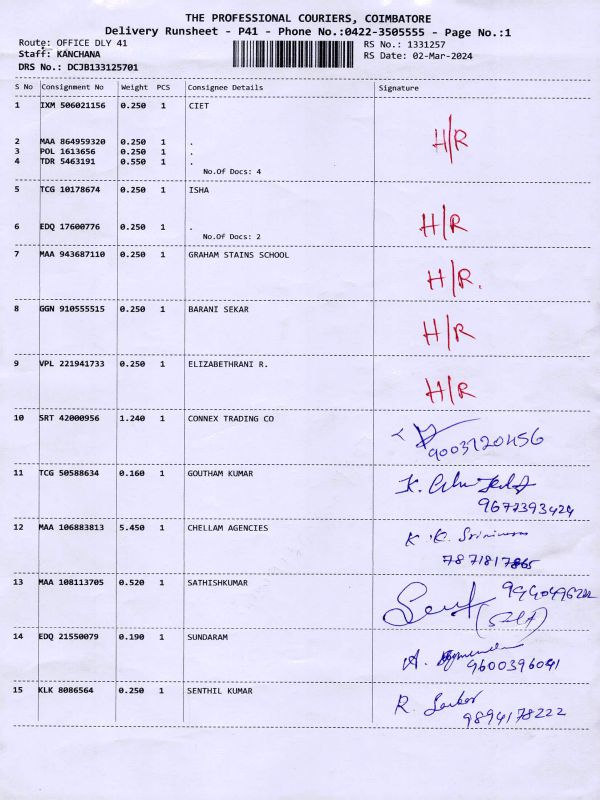 THE PROFESSIONAL COURIERS, COIMBATORE
Delivery Runsheet - P41 - Phone No.:0422-3505555 - Page No.:1
Route: OFFICE DLY 41
RS No.: 1331257
Staff: KANCHANA
RS Date: 02-Mar-2024
DRS No.: DCJB133125701
S No Consignment No Weight PCS Consignee Details Signature
1 IXM 506021156 0.250 1 CIET
H/R
2 MAA 864959320 0.250 1 .
3 POL 1613656 0.250 1 .
4 TDR 5463191 0.550 1 .
No.Of Docs: 4
5 TCG 10178674 0.250 1 ISHA
H/R
6 EDQ 17600776 0.250 1 .
No.Of Docs: 2
7 MAA 943687110 0.250 1 GRAHAM STAINS SCHOOL
H/R.
8 GGN 910555515 0.250 1 BARANI SEKAR
H/R
9 VPL 221941733 0.250 1 ELIZABETHRANI R.
H/R
10 SRT 42000956 1.240 1 CONNEX TRADING CO
9003720456
11 TCG 50588634 0.160 1 GOUTHAM KUMAR
K.
9677393424
12 MAA 106883813 5.450 1 CHELLAM AGENCIES
K. K. Srinivasan
7871817865
13 MAA 108113705 0.520 1 SATHISHKUMAR
14 EDQ 21550079 0.190 1 SUNDARAM
A.
9600396041
15 KLK 8086564 0.250 1 SENTHIL KUMAR
R.
9894178222